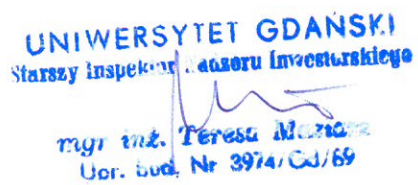 UNIWERSYTET GDAŃSKI
Starszy Inspektor Nadzoru Inwestorskiego
mgr inż. Teresa
Upr. bud. Nr 3974/Gd/69